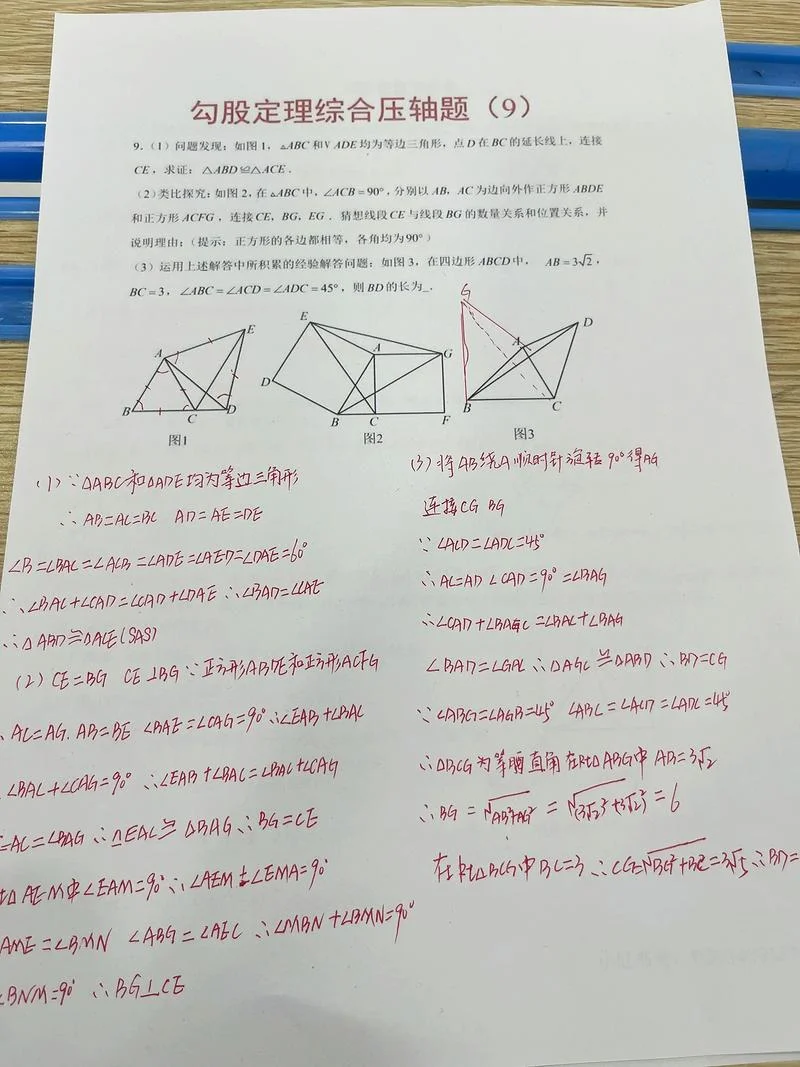 勾股定理综合压轴题（9）
9.（1）问题发现：如图 1，△ABC 和V ADE 均为等边三角形，点 D 在 BC 的延长线上，连接
CE，求证：△ABD≌△ACE．
（2）类比探究：如图 2，在△ABC 中，∠ACB＝90°，分别以 AB，AC 为边向外作正方形 ABDE
和正方形 ACFG，连接 CE，BG，EG．猜想线段 CE 与线段 BG 的数量关系和位置关系，并
说明理由；（提示：正方形的各边都相等，各角均为90°）
（3）运用上述解答中所积累的经验解答问题：如图 3，在四边形 ABCD 中， AB＝3√2，
BC＝3，∠ABC＝∠ACD＝∠ADC＝45°，则 BD 的长为_．
A B C D E
图1
E A G D B C F
图2
G A D B C
图3
(1) ∵△ABC和△ADE均为等边三角形
∴ AB=AC=BC AD=AE=DE
∠B=∠BAC=∠ACB=∠ADE=∠AED=∠DAE=60°
∴∠BAC+∠CAD=∠CAD+∠DAE ∴∠BAD=∠CAE
∴△ABD≌△ACE(SAS)
(2) CE=BG CE⊥BG ∵正方形ABDE和正方形ACFG
AC=AG. AB=BE ∠BAE=∠CAG=90° ∴∠EAB+∠BAC
∠BAC+∠CAG=90° ∴∠EAB+∠BAC=∠BAC+∠CAG
=AC=∠BAG ∴△EAC≌△BAG ∴BG=CE
△AEM中∠EAM=90° ∴∠AEM+∠EMA=90°
AME=∠BMN ∠ABG=∠AEC ∴∠MBN+∠BMN=90°
∠BNM=90° ∴BG⊥CE
(3) 将AB绕A顺时针旋转90°得AG
连接CG BG
∵∠ACD=∠ADC=45°
∴AC=AD ∠CAD=90°=∠BAG
∴∠CAD+∠BAC=∠BAC+∠BAG
∠BAD=∠GAC ∴△AGC≌△ABD ∴BD=CG
∵∠ABG=∠AGB=45° ∠ABC=∠ACD=∠ADC=45°
∴△BCG为等腰直角 在Rt△ABG中 AB=3√2
∴BG=√AB²+AG²=√(3√2)²+(3√2)²=6
在Rt△BCG中BC=3 ∴CG=√BG²+BC²=3√5 ∴BD=